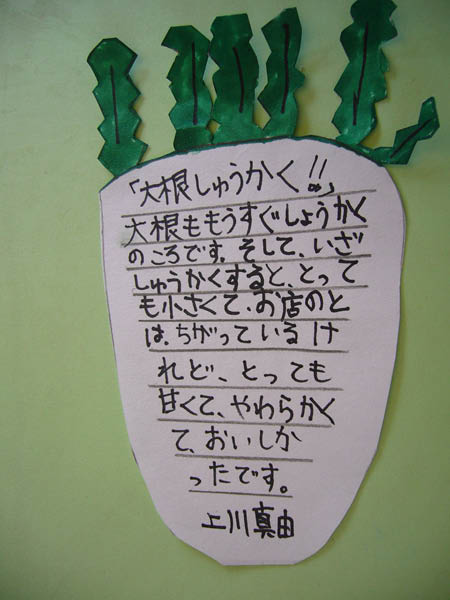 「大根しゅうかく!!」
大根ももうすぐしょうかく
のころです。そして、いざ
しゅうかくすると、とって
も小さくて、お店のと
は、ちがっているけ
れど、とっても
甘くて、やわらかく
て、おいしか
ったです。
上川真由